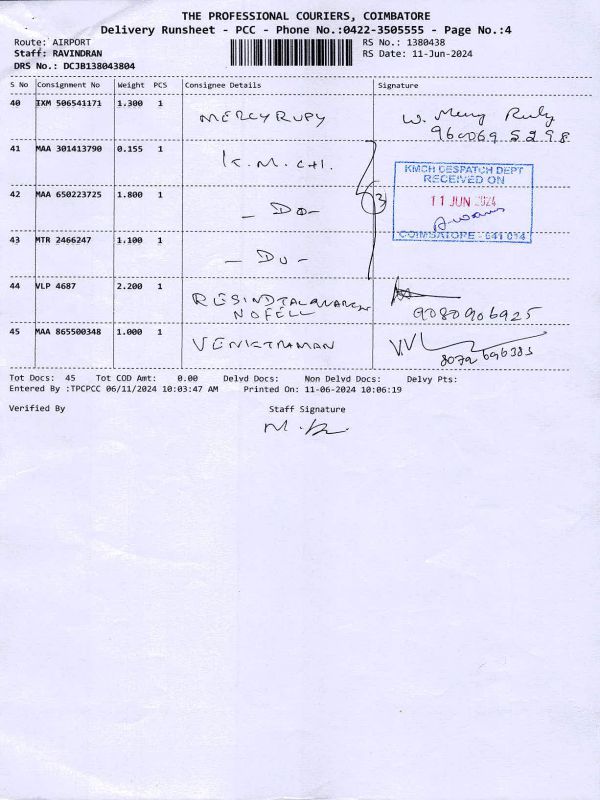 THE PROFESSIONAL COURIERS, COIMBATORE
Delivery Runsheet - PCC - Phone No.:0422-3505555 - Page No.:4
Route: AIRPORT RS No.: 1380438
Staff: RAVINDRAN RS Date: 11-Jun-2024
DRS No.: DCJB138043804
S No Consignment No Weight PCS Consignee Details Signature
40 IXM 506541171 1.300 1 MERCYRUPY W. Mercy Ruby
960069 5298
41 MAA 301413790 0.155 1 K.M.CH.
KMCH DESPATCH DEPT
RECEIVED ON
42 MAA 650223725 1.800 1 - DO - 3 11 JUN 2024
COIMBATORE - 641 014
43 MTR 2466247 1.100 1 - DO -
44 VLP 4687 2.200 1
NOFELL 9080906925
45 MAA 865500348 1.000 1 VENKTRAMAN
8072696383
Tot Docs: 45 Tot COD Amt: 0.00 Delvd Docs: Non Delvd Docs: Delvy Pts:
Entered By :TPCPCC 06/11/2024 10:03:47 AM Printed On: 11-06-2024 10:06:19
Verified By Staff Signature